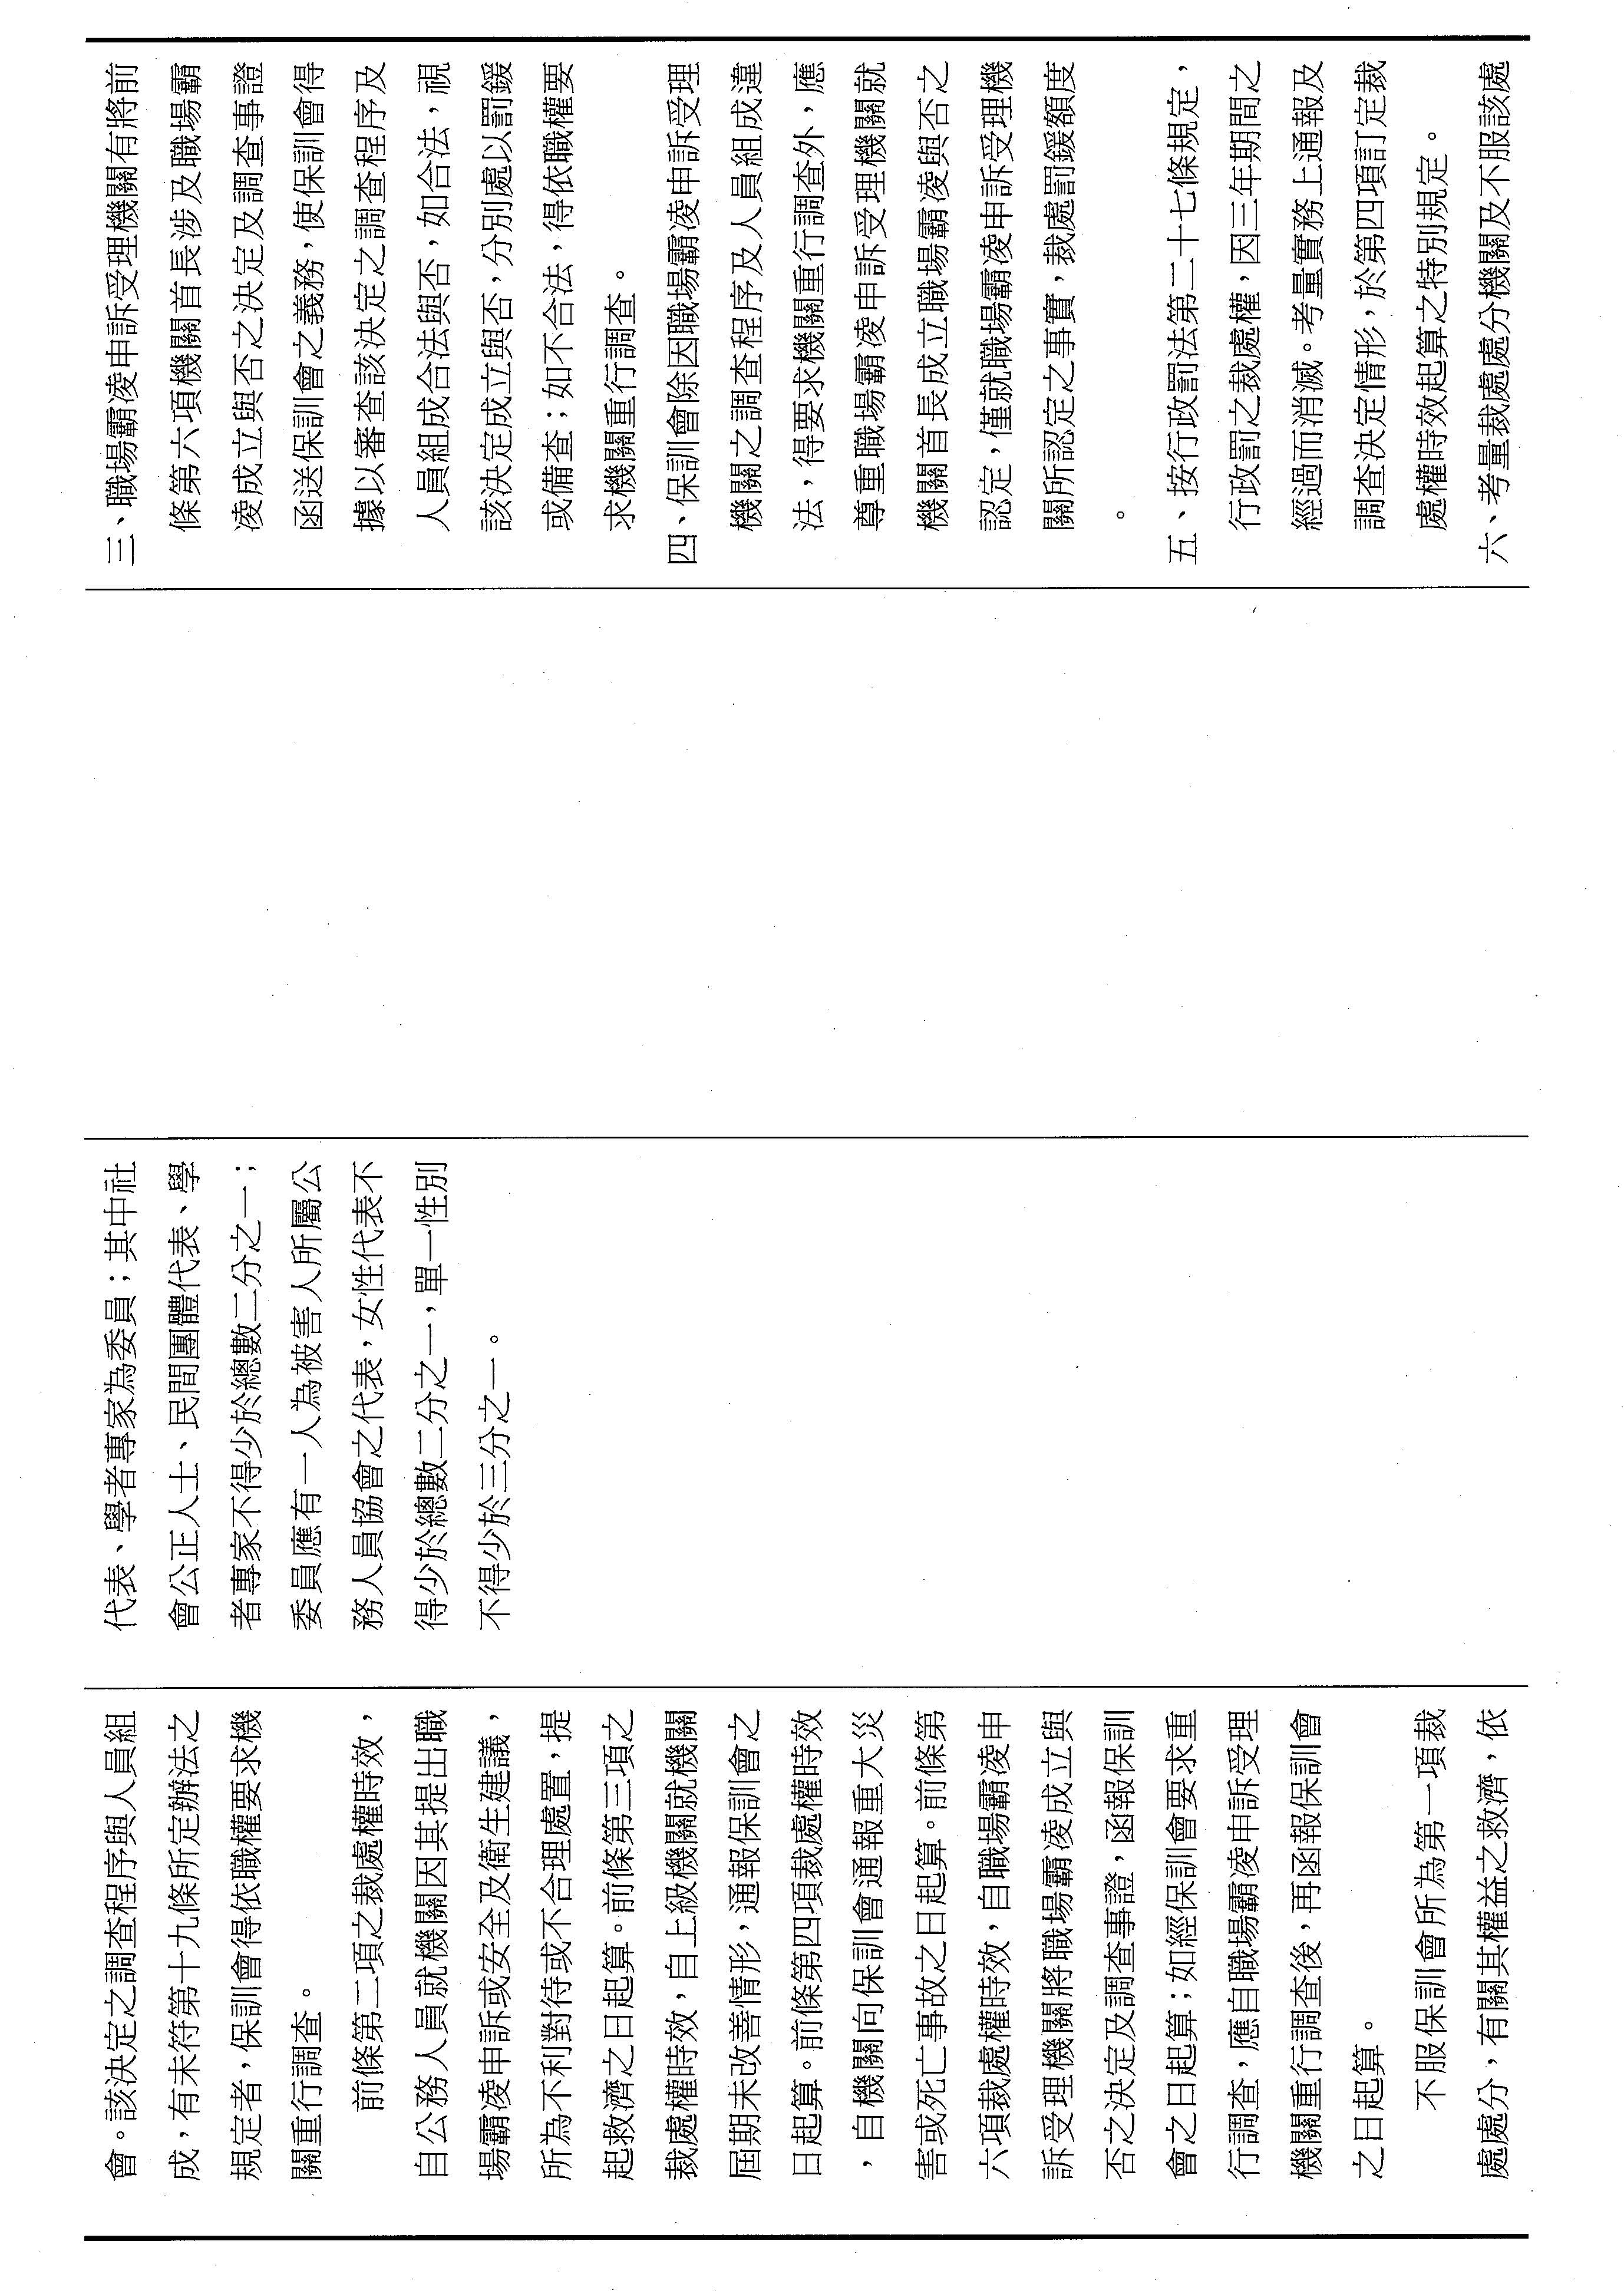 會。該決定之調查程序與人員組
成，有未符第十九條所定辦法之
規定者，保訓會得依職權要求機
關重行調查。
前條第二項之裁處權時效，
自公務人員就機關因其提出職
場霸凌申訴或安全及衛生建議，
所為不利對待或不合理處置，提
起救濟之日起算。前條第三項之
裁處權時效，自上級機關就機關
屆期未改善情形，通報保訓會之
日起算。前條第四項裁處權時效
，自機關向保訓會通報重大災
害或死亡事故之日起算。前條第
六項裁處權時效，自職場霸凌申
訴受理機關將職場霸凌成立與
否之決定及調查事證，函報保訓
會之日起算；如經保訓會要求重
行調查，應自職場霸凌申訴受理
機關重行調查後，再函報保訓會
之日起算。
不服保訓會所為第一項裁
處處分，有關其權益之救濟，依
代表、學者專家為委員；其中社
會公正人士、民間團體代表、學
者專家不得少於總數二分之一；
委員應有一人為被害人所屬公
務人員協會之代表，女性代表不
得少於總數二分之一，單一性別
不得少於三分之一。
三、職場霸凌申訴受理機關有將前
條第六項機關首長涉及職場霸
凌成立與否之決定及調查事證
函送保訓會之義務，使保訓會得
據以審查該決定之調查程序及
人員組成合法與否，如合法，視
該決定成立與否，分別處以罰鍰
或備查；如不合法，得依職權要
求機關重行調查。
四、保訓會除因職場霸凌申訴受理
機關之調查程序及人員組成違
法，得要求機關重行調查外，應
尊重職場霸凌申訴受理機關就
機關首長成立職場霸凌與否之
認定，僅就職場霸凌申訴受理機
關所認定之事實，裁處罰鍰額度
。
五、按行政罰法第二十七條規定，
行政罰之裁處權，因三年期間之
經過而消滅。考量實務上通報及
調查決定情形，於第四項訂定裁
處權時效起算之特別規定。
六、考量裁處處分機關及不服該處